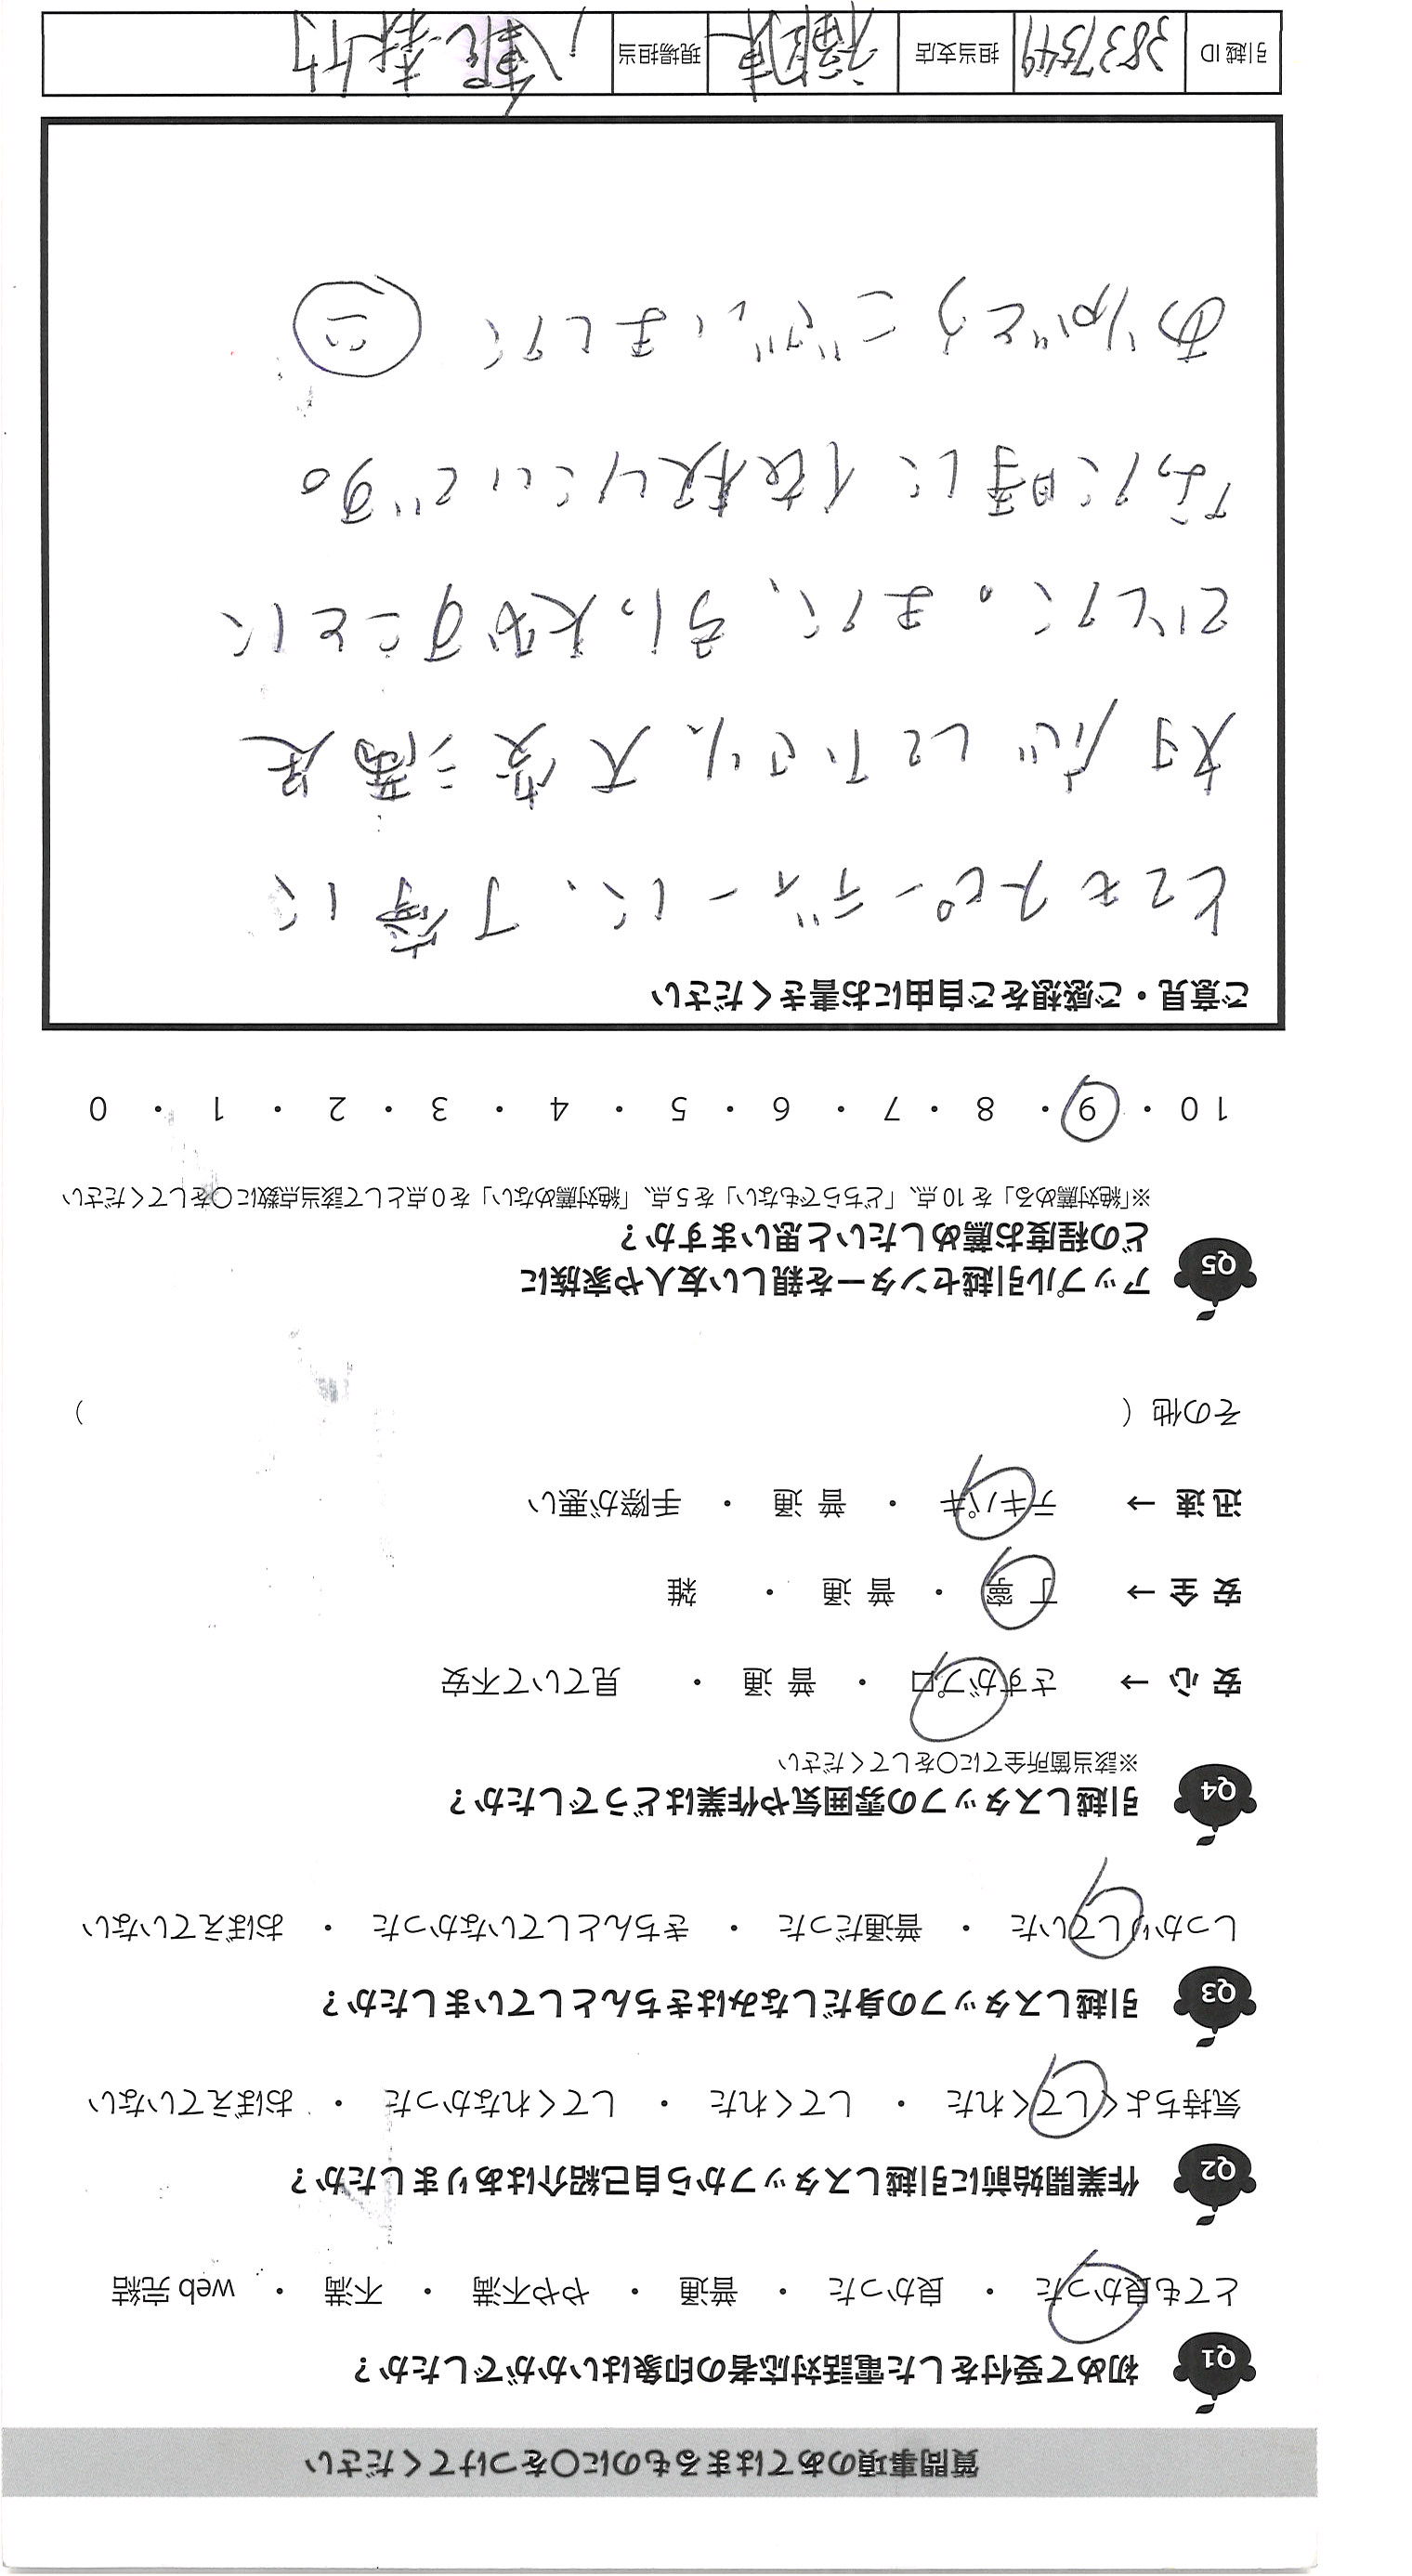 質問事項のあてはまるものに○をつけてください
Q1 初めて受付をした電話対応者の印象はいかがでしたか？
とても良かった ・ 良かった ・ 普通 ・ やや不満 ・ 不満 ・ web完結
Q2 作業開始前に引越しスタッフから自己紹介はありましたか？
気持ちよくしてくれた ・ してくれた ・ してくれなかった ・ おぼえていない
Q3 引越しスタッフの身だしなみはきちんとしていましたか？
しっかりしていた ・ 普通だった ・ きちんとしていなかった ・ おぼえていない
Q4 引越しスタッフの雰囲気や作業はどうでしたか？
※該当箇所全てに○をしてください
安心 → さすがプロ ・ 普通 ・ 見ていて不安
安全 → 丁寧 ・ 普通 ・ 雑
迅速 → テキパキ ・ 普通 ・ 手際が悪い
その他（ ）
Q5 アップル引越センターを親しい友人や家族に
どの程度お薦めしたいと思いますか？
※「絶対薦める」を10点、「どちらでもない」を5点、「絶対薦めない」を0点として該当点数に○をしてください
10 ・ 9 ・ 8 ・ 7 ・ 6 ・ 5 ・ 4 ・ 3 ・ 2 ・ 1 ・ 0
ご意見・ご感想をご自由にお書きください
とてもスピーディーに、丁寧に
対応して下さり、大変満足
でした。また、引っ越すことに
なった時に依頼したいです。
ありがとうございました
引越ID 3837349 担当支店 福岡東 現場担当